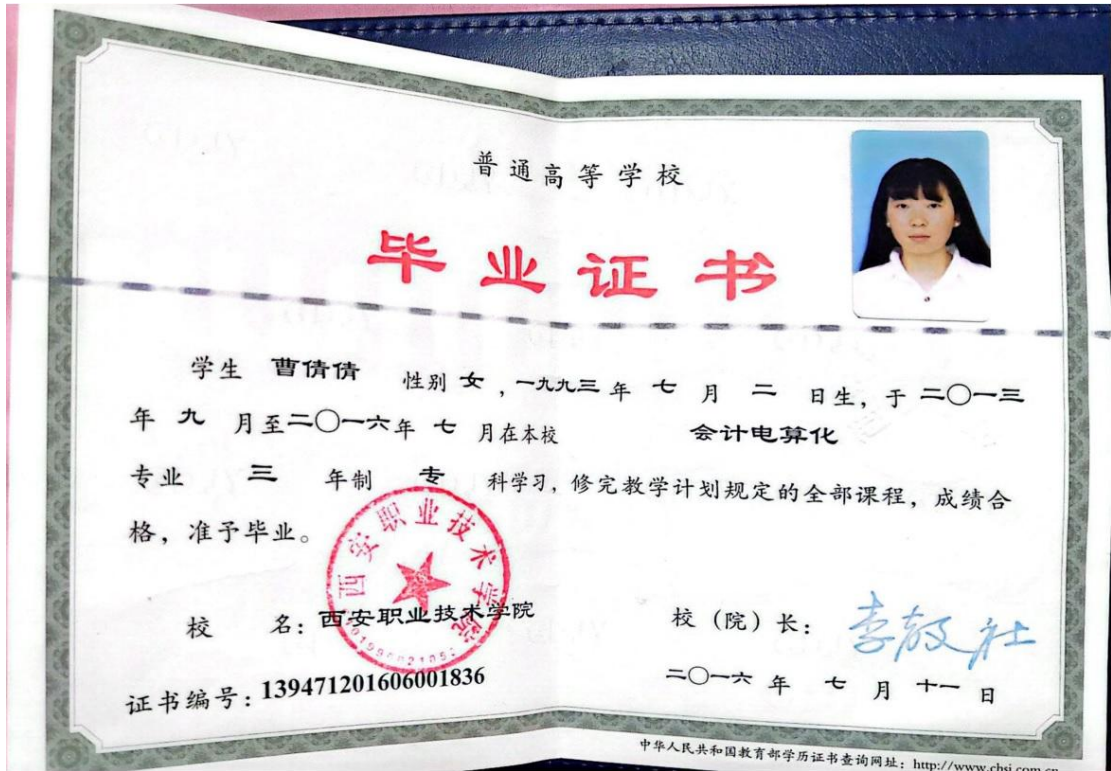 普通高等学校
毕业证书
学生 曹倩倩 性别 女，一九九三 年 七 月 二 日生，于 二〇一三
年 九 月至二〇一六年 七 月在本校 会计电算化
专业 三 年制 专 科学习，修完教学计划规定的全部课程，成绩合
格，准予毕业。
西安职业技术学院
校 名：西安职业技术学院 校（院）长：
证书编号：139471201606001836 二〇一六 年 七 月 十一 日
中华人民共和国教育部学历证书查询网址：http://www.chsi.com.cn